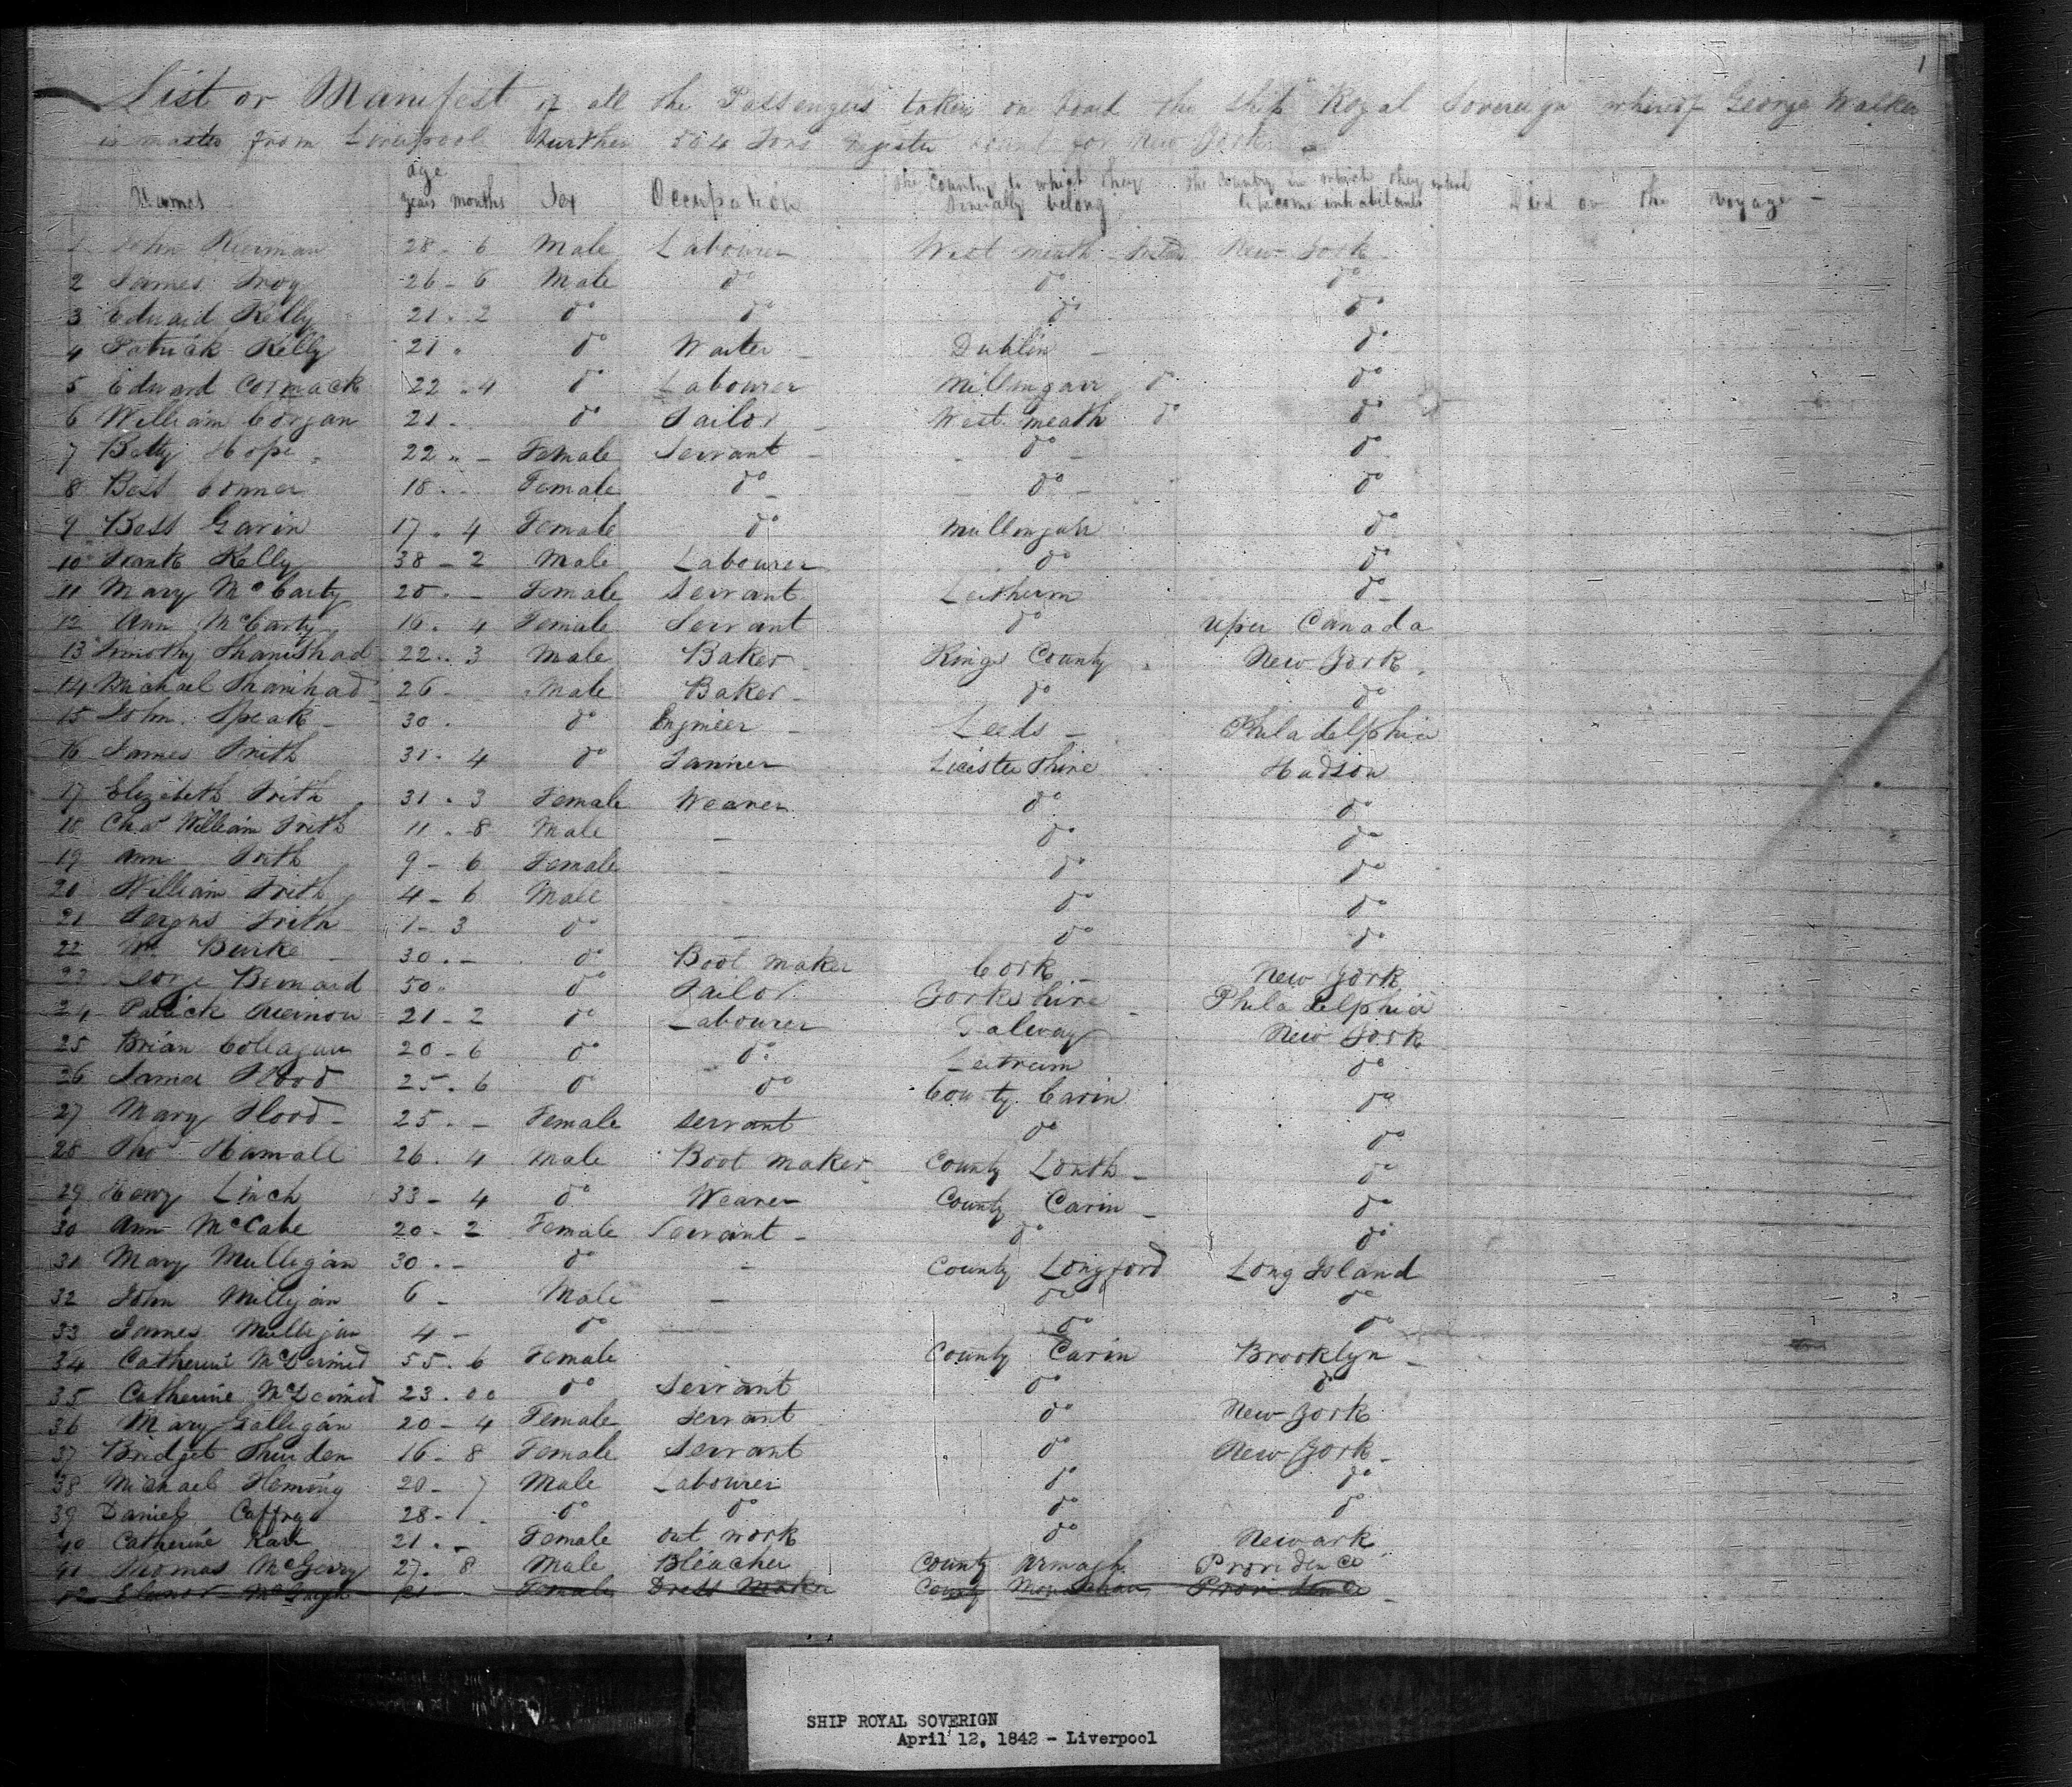 1
List or Manifest of all the Passengers taken on board the ship Royal Sovereign whereof George Walker
is master from Liverpool burthen 564 Tons Register bound for New York
Names age years months Sex Occupation The Country to which they severally belong The Country in which they intend to become inhabitants Died on the Voyage -
1 John Kiernan 28 - 6 Male Labourer West meath New York
2 James Troy 26 - 6 Male do do do
3 Edward Kelly 21 - 2 do do do do
4 Patrick Kelly 21 do Waiter - Dublin - do
5 Edward Cormack 22 - 4 do Labourer Millingarr do do
6 William Corgan 21 - do Tailor - West meath do do
7 Betty Hope 22 " - Female Servant - do - do
8 Bess Conner 18 - Female do - do - do
9 Bess Gavin 17 - 4 Female do Mullongarr do
10 Frank Kelly 38 - 2 Male Labourer do do
11 Mary McCarty 20 - - Female Servant Leitherm do
12 Ann McCarty 16 - 4 Female Servant do Uper Canada
13 Timothy Thanishad 22 - 3 Male Baker Kings County New York
14 Michael Thanihad 26 - Male Baker - do do
15 John Speak - 30 - do Engineer - Leeds - Philadelphia
16 James Frith 31 - 4 do Tanner Liecistershire Hudson
17 Elizebeth Frith 31 - 3 Female Weaver do do
18 Chas William Frith 11 - 8 Male - do do
19 Ann Frith 9 - 6 Female - do do
20 William Frith 4 - 6 Male do do
21 Fergus Frith 1 - 3 do - do do
22 Wm Burke - 30 - - do Boot maker Cork - New York
23 George Bernard 50 do Tailor Yorkshire - Philadelphia
24 Patrick 21 - 2 do Labourer Galway New York
25 Brian Collagan 20 - 6 do do Leitrum do
26 James Flood 25 - 6 do do County Cavin do
27 Mary Flood - 25 - - Female servant do do
28 Thos Hamall 26 - 4 male Boot maker County Louth - do
29 Henry Linch 33 - 4 do Weaver County Cavin - do
30 Ann McCabe 20 - 2 Female Servant - do do
31 Mary Mulligan 30 - - do - County Longford Long Island
32 John Milligan 6 - Male - do do
33 James Mulligan 4 - do do do
34 Catherine McDermid 55 - 6 Female County Cavin Brooklyn -
35 Catherine McDermid 23 - 00 do Servant do do
36 Mary Gallegan 20 - 4 Female Servant do New York
37 Bridget 16 - 8 Female Servant do New York -
38 Michael Fleming 20 - 7 Male Labourer do do
39 Daniel Caffry 28 - 1 - do do do do
40 Catherine Karr 21 - - Female out work do Newark
41 Thomas McGerry 27 - 8 Male Bleacher County Armagh Providence
42 Elenor Female Dress Maker County Monaghan Providence -
SHIP ROYAL SOVERIGN
April 12, 1842 - Liverpool